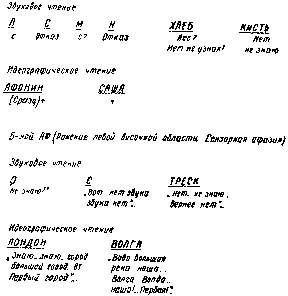 Звуковое чтение
Л С М Н ХЛЕБ КИСТЬ
с Отказ с? Отказ Лес? Нет
Нет не узнал? не знаю
Идеографическое чтение
АФОНИН САША
(Сразу)+ +
Б-ной АФ (Ранение левой височной области. Сензорная афазия)
Звуковое чтение
О С ТРЕСК
Не знаю?" „Вот нет звука „Нет. не знаю.
звука нет". вернее нет".
Идеографическое чтение
ЛОНДОН ВОЛГА
„Знаю.. знаю, город „Вода большая
большой город. вт река наша..
Первый город". Волга Волга..
наша!.. Первая!"